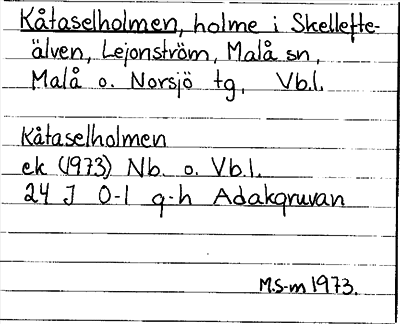 Kåtaselholmen, holme i Skellefte-
älven, Lejonström, Malå sn,
Malå o. Norsjö tg, Vb.l.
Kåtaselholmen
ek (1973) Nb. o. Vb.l.
24 J 0-1 g-h Adakgruvan
M.S-m 1973.